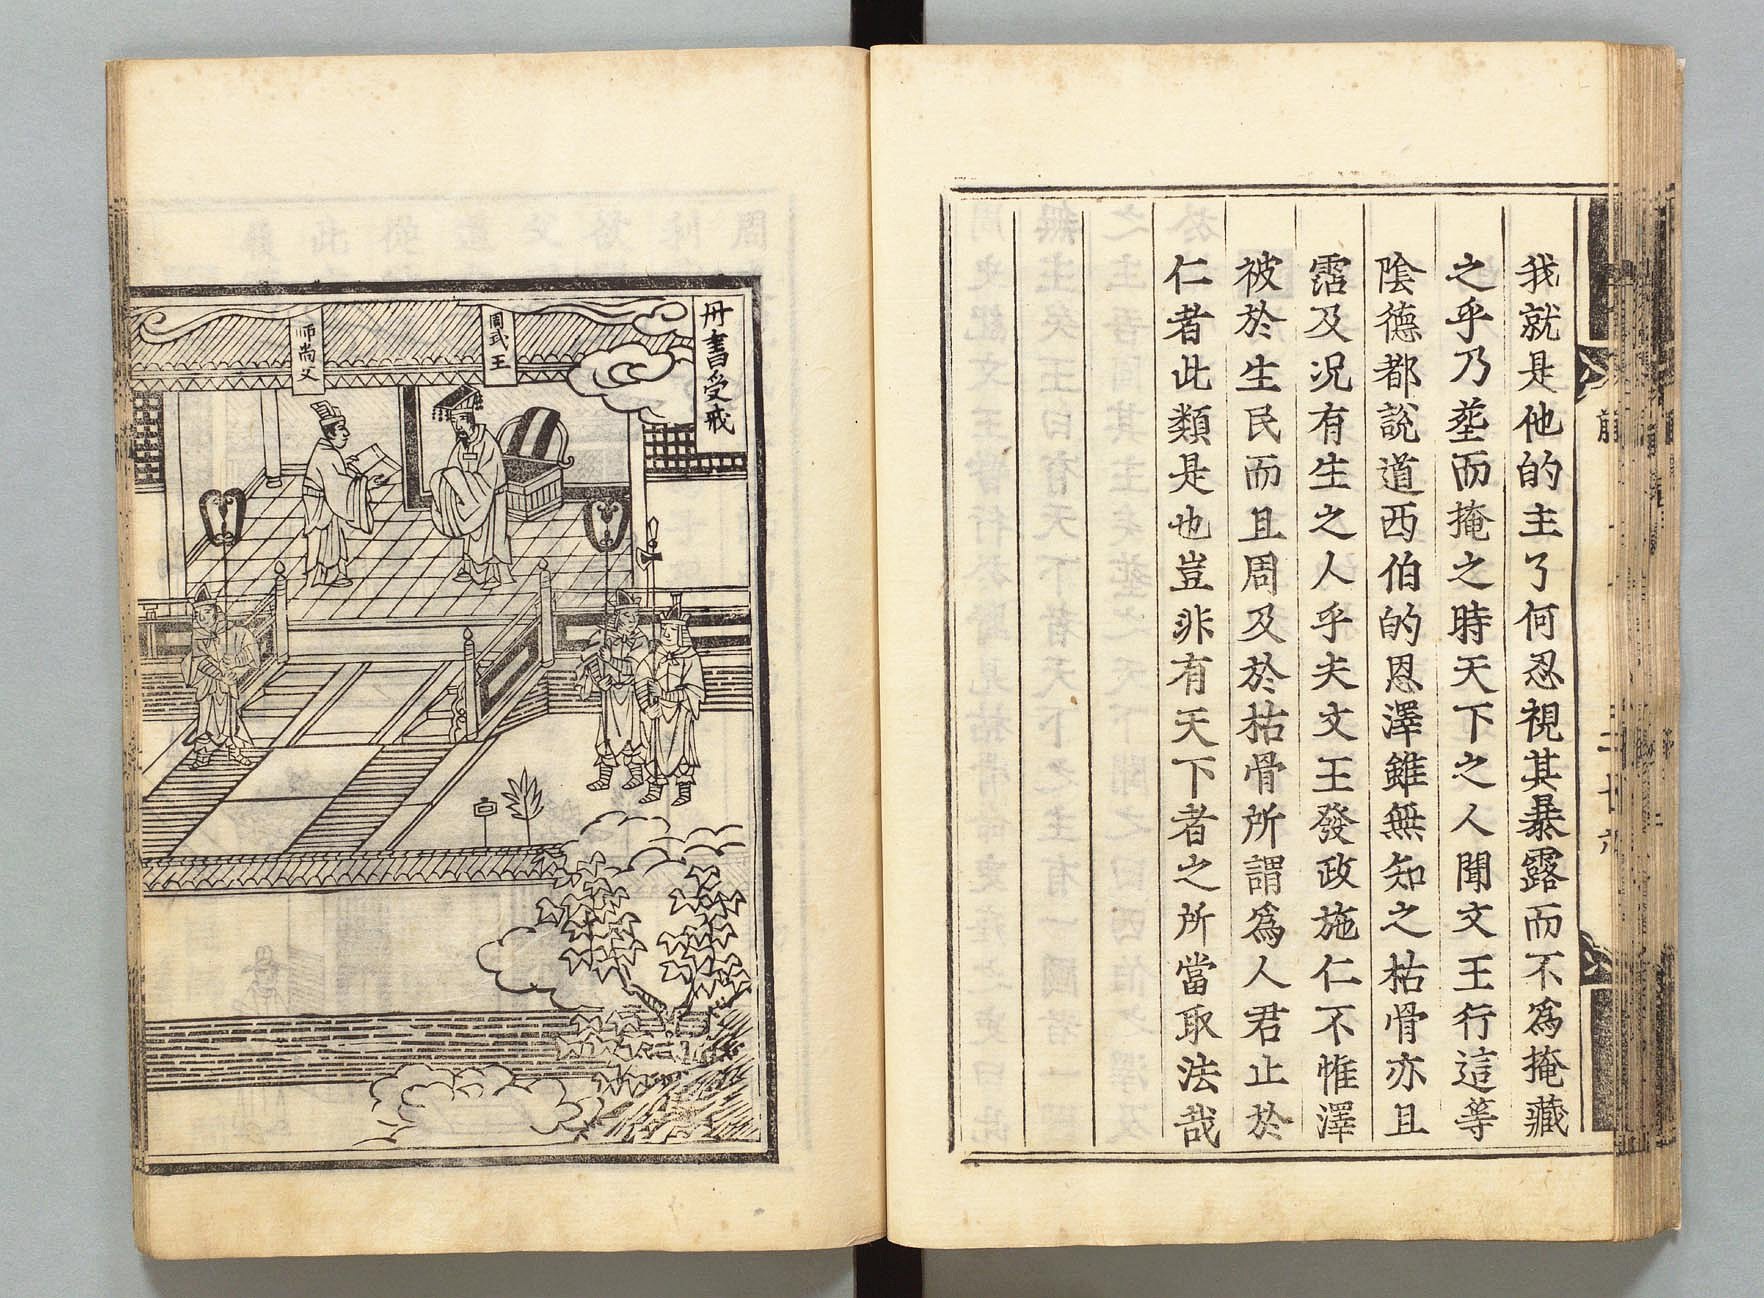 我就是他的主了何忍視其暴露而不為掩藏
之乎乃塟而掩之時天下之人聞文王行這等
陰德都說道西伯的恩澤雖無知之枯骨亦且
霑及况有生之人乎夫文王發政施仁不惟澤
被於生民而且周及於枯骨所謂為人君止於
仁者此類是也豈非有天下者之所當取法哉
丹書受戒
周武王
師尚父